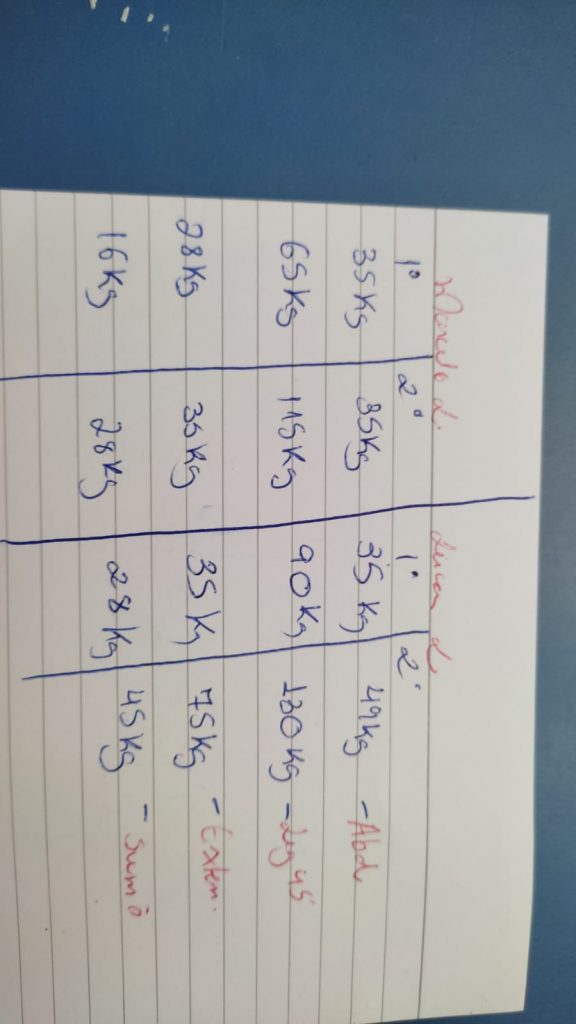 L. L
1º 2º 1º 2º
35Kg 35Kg 35Kg 49Kg - Abd.
65Kg 115Kg 90Kg - Leg 45°
28Kg 35Kg 35Kg 75Kg - Exten.
16Kg 28Kg 28Kg 45Kg - Sumô